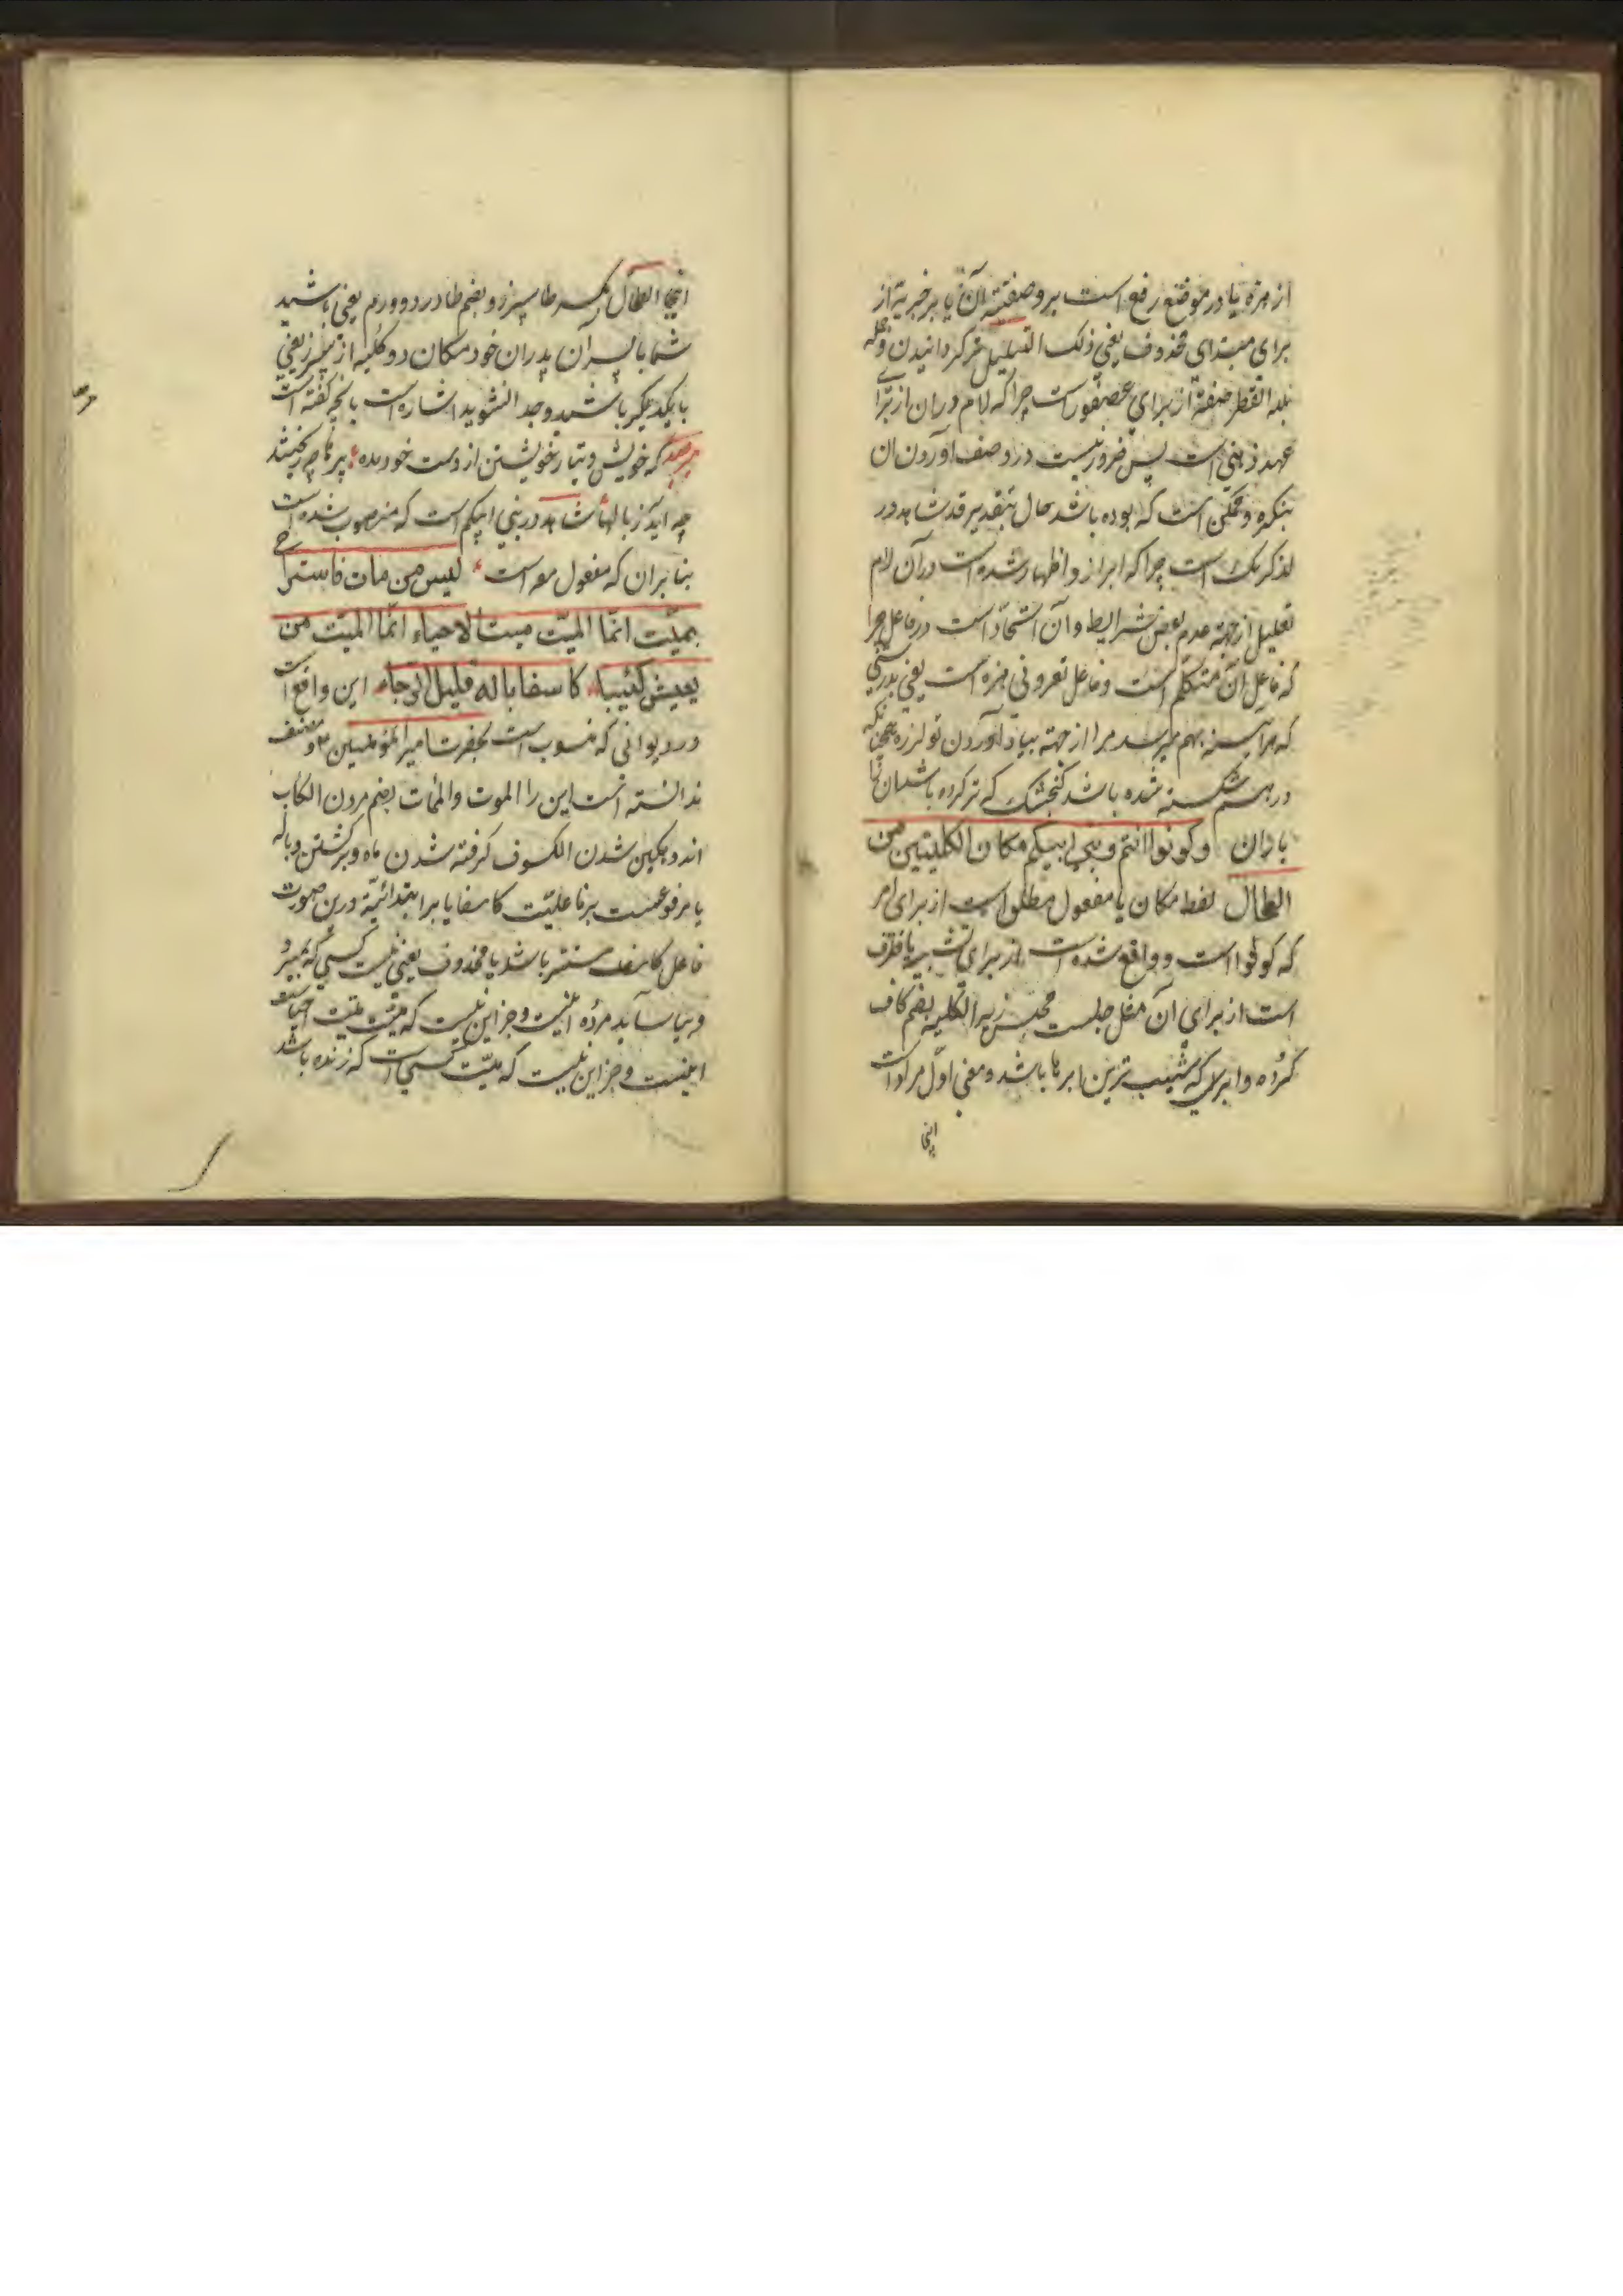 از هزه یا در موضع رفع است بر وصفیته آن یا بر خبریة از
برای مبتدای محذوف یعنی ذلک التبلیل تر کردانیدن و جمله
بلله القطر صفة از برای عصفور است چرا که لام در ان از برا
عهد ذهنی است پس ضرور نیست در وصف آوردن ان
بنکره و ممکن است که بوده باشد حال بتقدیر قد شاهد در
لذکریک است چرا که ابراز و اظهار شده است در آن لام
تعلیل از جهة عدم بعض شرایط و آن اتحاد است در فاعل چرا
که فاعل آن متکلم است و فاعل تعرونی هزه است یعنی بدرستی
که هر آینه بهم میرسد مرا از جهته بیاد آوردن تو لرزه همچنانکه
در هم شکسته شده باشد گنجشک که تر کرده باشد ان را
باران وکونوا انتم وبنی ابیکم مکان الکلیتین من
الطحال لفظ مکان یا مفعول مطلق است از برای امر
که کونوا است و واقع شده است از برای تشبیه یا ظرف
است از برای آن مثل جلست مجلس زید الکلیه بضم کاف
کرده و ابری که شیب ترین ابرها باشد و معنی اول مراد است
اینجا
اینجا الطحال بکسر طا سپرز و بضم طا درد و ورم یعنی باشید
شما با پسران پدران خود مکان دو کلیه از سپرز یعنی
با یکدیگر باشید و جدا نشوید اشاره است بانچه گفته است
که خویش و تبار خویشتن از دست خود مده پرها چو ریختند
چه آید ز بالها شاهد در بنی ابیکم است که منصوب شده است
بنا بر ان که مفعول معه است لیس من مات فاستراح
بمیّت انّما المیّت میت الاحیاء انّما المیّت من
یعیش کئیبا کاسفا باله قلیل الرجاء این واقع است
در دیوانی که منسوب است بحضرت امیر المؤمنین و مصنف
ندانسته است این را الموت والممات بضم مردن الکاب
اندوهکین شدن الکسوف گرفته شدن ماه و برگشتن و باله
یا مرفوعست بر فاعلیّت کاسفا یا بر ابتدائیّة درین صورت
فاعل کاسف مستتر باشد یا محذوف یعنی نیست کسی که بمیرد
و بیاساید مرده اینست و جز این نیست که میّت میّت احیاست
اینست و جز این نیست که میّت کسی است که زنده باشد